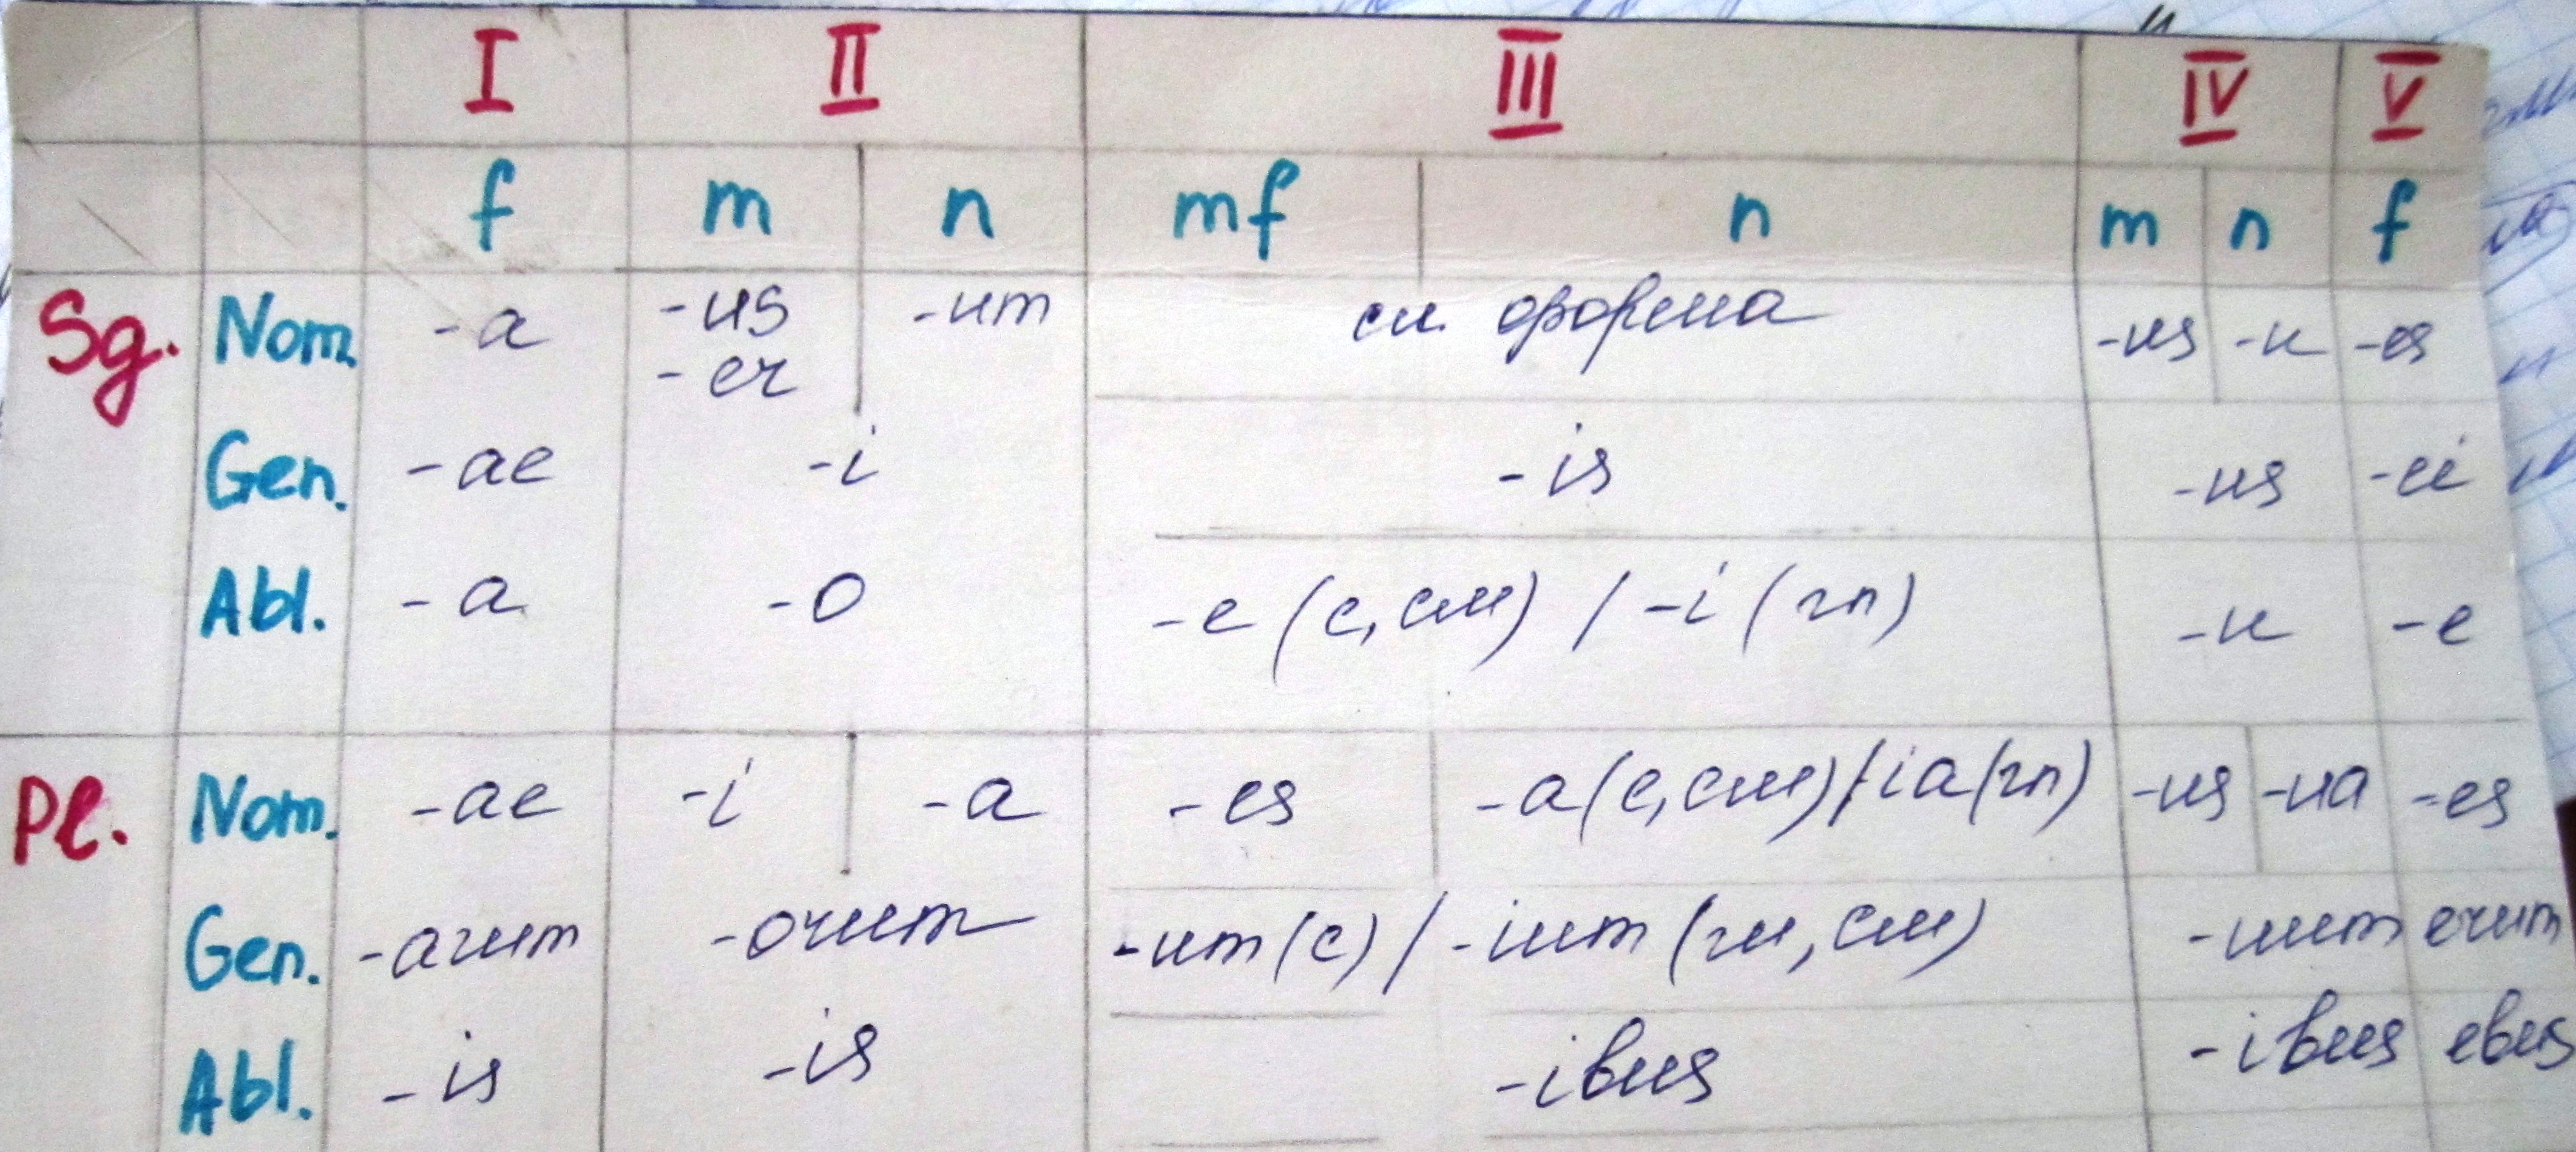 I II III IV V
f m n mf n m n f
Sg. Nom. -a -us -um см. форма -us -u -es
-er
Gen. -ae -i -is -us -ei
Abl. -a -o -e (с, см) / -i (гл) -u -e
Pl. Nom. -ae -i -a -es -a (с, см) / ia (гл) -us -ua -es
Gen. -arum -orum -um (с) / -ium (гл, см) -uum erum
Abl. -is -is -ibus -ibus ebus